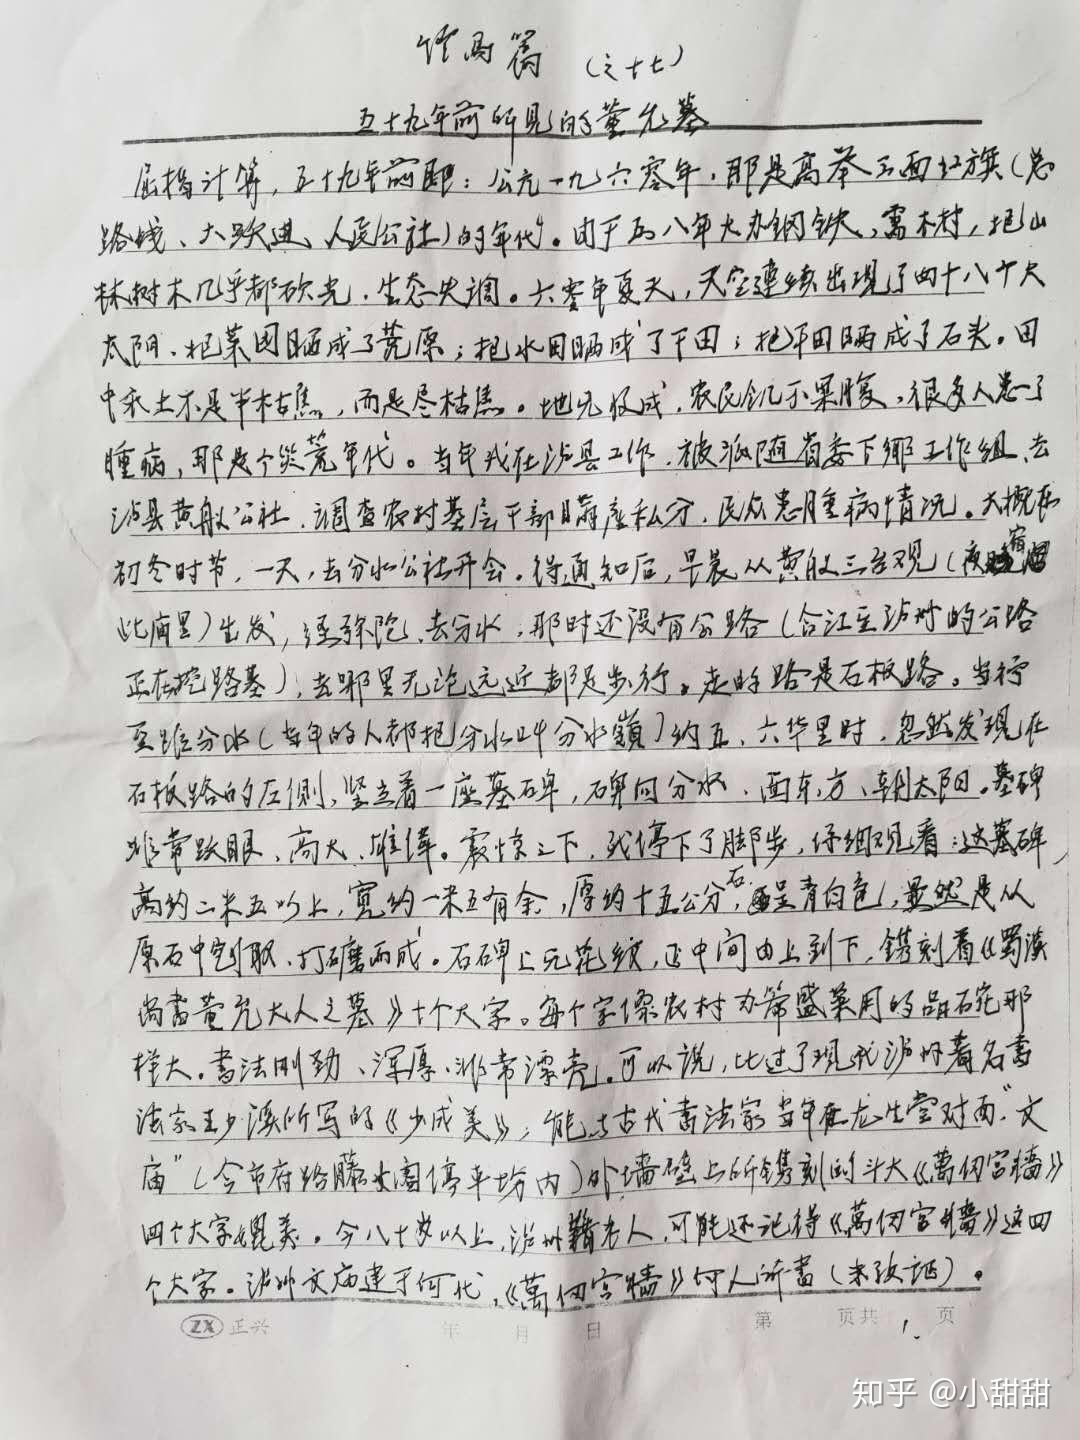 篇（之十七）
五十九年前所见的董允墓
屈指计算，五十九年前即：公元一九六零年，那是高举三面红旗（总
路线、大跃进、人民公社）的年代。由于五八年大办钢铁，需木材，把山
林树木几乎都砍光，生态失调。六零年夏天，天空连续出现了四十八个大
太阳、把菜园晒成了荒原；把水田晒成了干田；把干田晒成了石头。田
中禾土不是半枯焦，而是尽枯焦。地无收成，农民饥不果腹，很多人患了
肿病，那是个灾荒年代。当年我在泸县工作，被派随省委下乡工作组、去
泸县黄舣公社，调查农村基层干部瞒产私分，民众患肿病情况。大概在
初冬时节，一天，去分水公社开会。得通知后，早晨从黄舣三台观（夜宿
此庙里）出发，经弥陀、去分水，那时还没有公路（合江至泸州的公路
正在挖路基），去哪里无论远近都是步行。走的路是石板路。当行
至距分水（当年的人都把分水叫分水嶺）约五、六华里时，忽然发现在
石板路的左侧，竖立着一座墓碑，碑向分水、面东方、朝太阳。墓碑
非常跃眼、高大、雄伟。震惊之下，我停下了脚步，仔细观看：这墓碑，
高约二米五以上，宽约一米五有余，厚约十五公分，石呈青白色，显然是从
原石中割取、打磨而成。石碑上无花纹，正中间由上到下，镌刻着《蜀漢
尚書董允大人之墓》十个大字。每个字像农村办筵盛菜用的品碗那
样大。書法刚劲、浑厚、非常漂亮。可以说，比过了现代泸州著名書
法家王少溪所写的《少成美》；能与古代書法家当年在龙生堂对面“文
庙”（今市府路藤阁停车坊内）外墙壁上所镌刻的斗大《萬仞宫牆》
四个大字媲美。今八十岁以上，泸州籍老人，可能还记得《萬仞宫牆》这四
个大字。泸州文庙建于何代，《萬仞宫牆》何人所書（未考证）。
ZX 正兴 年 月 日 第 页共 1. 页
知乎 @小甜甜